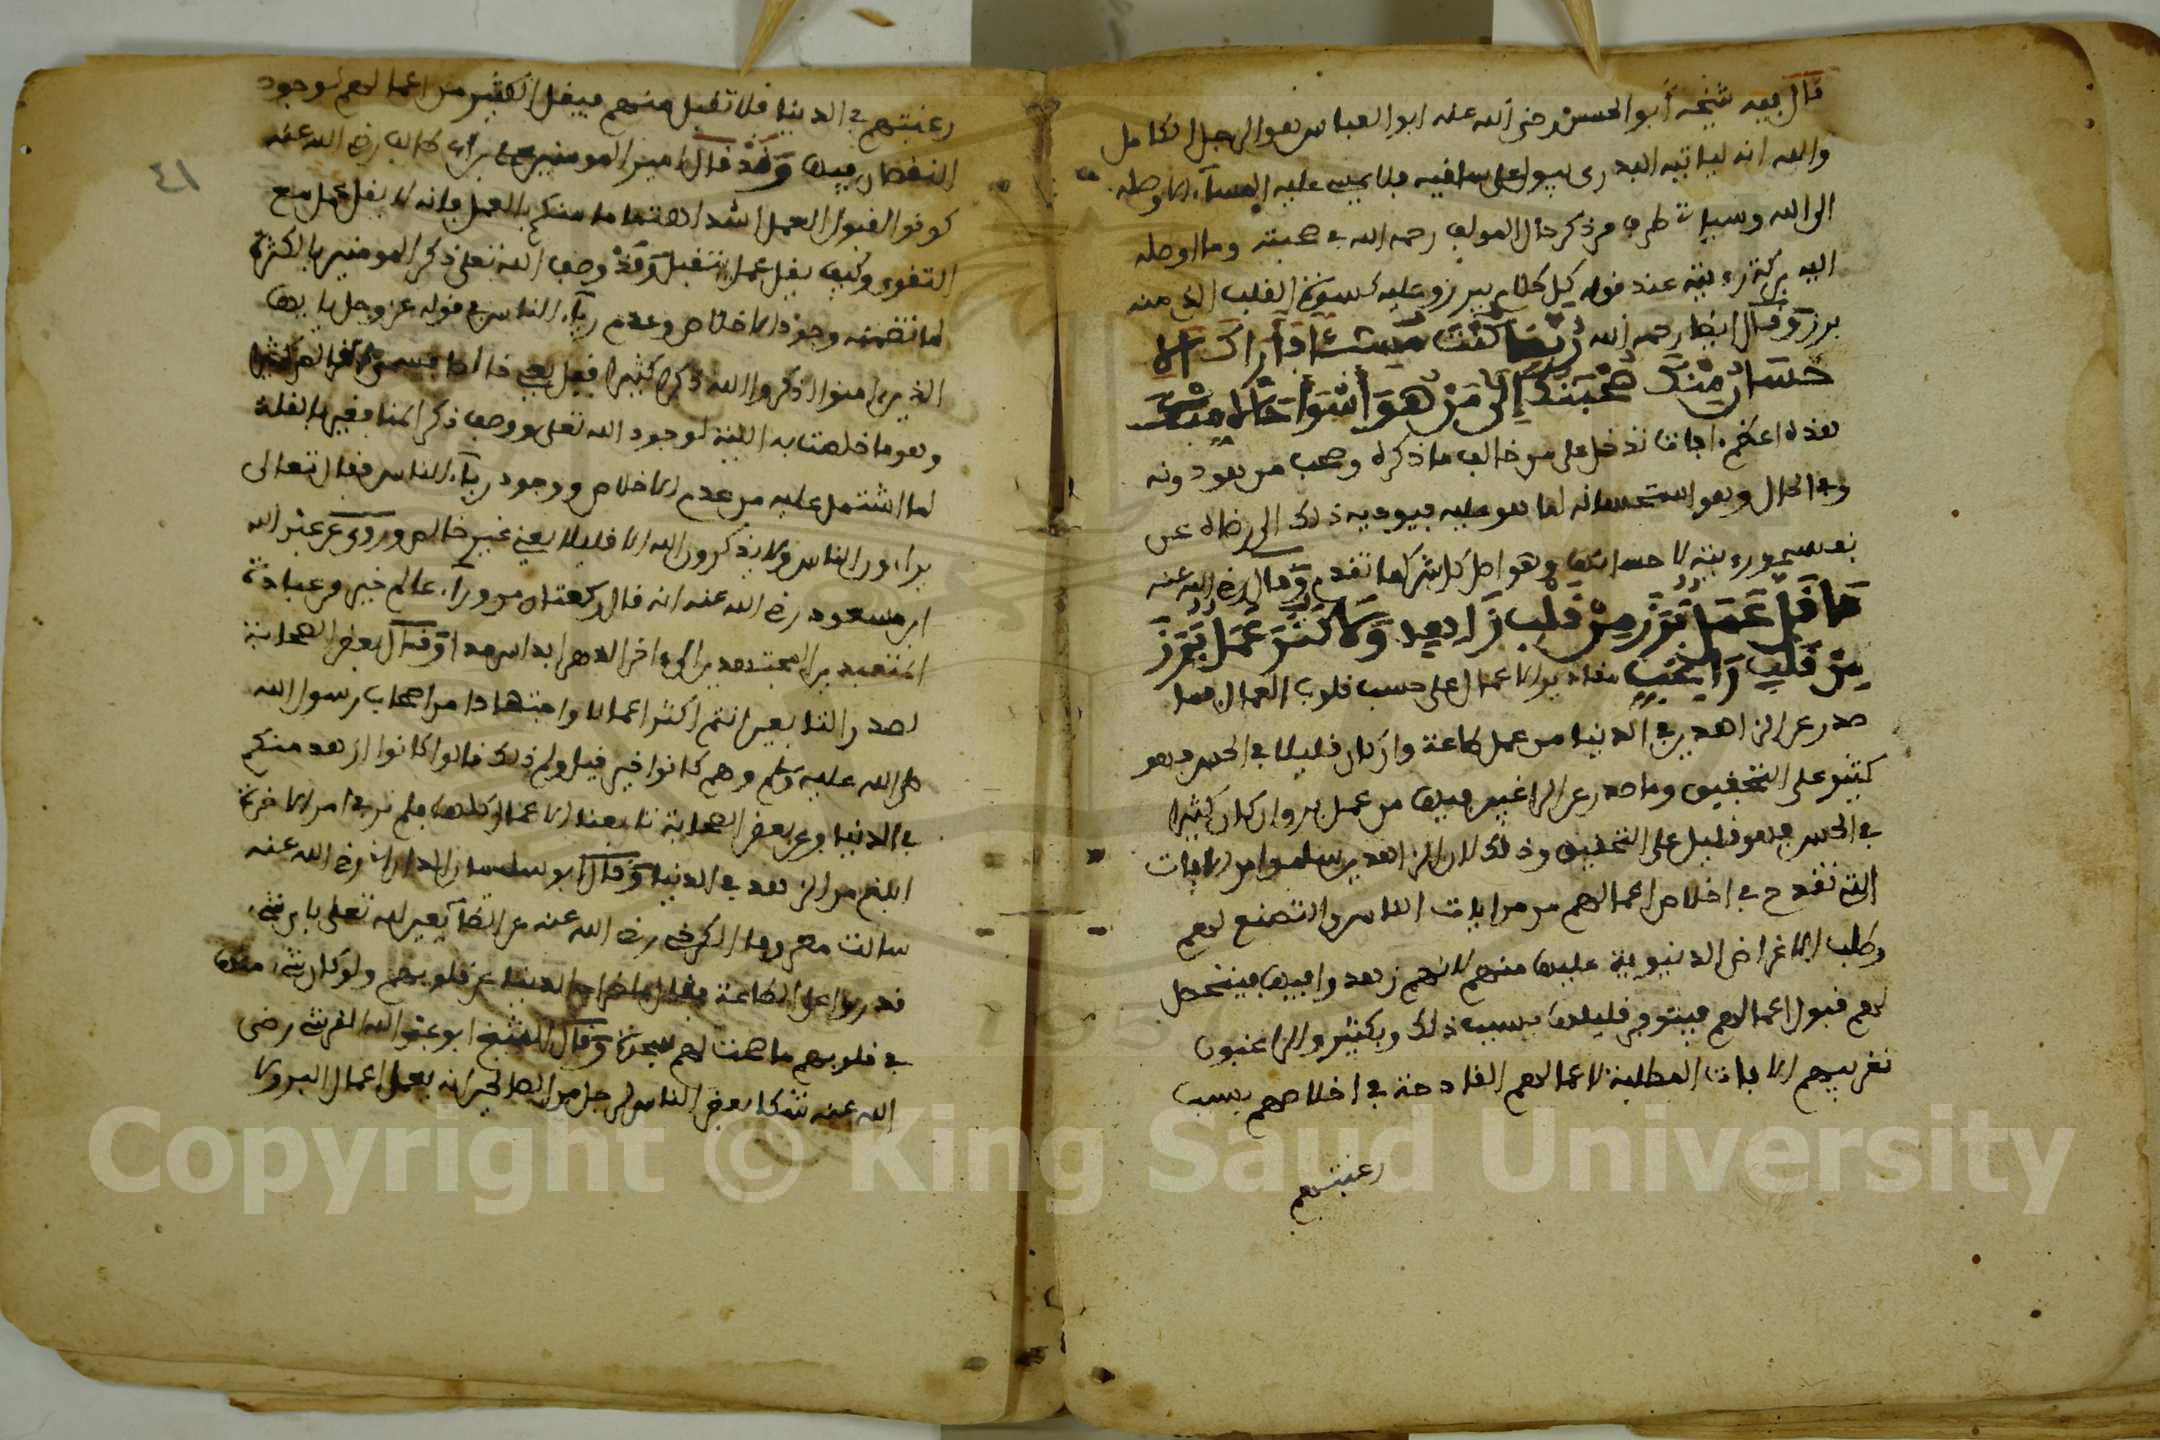 قال فيه شيخه أبو الحسن رضي الله عنه ابو العباس هو الرجل الكامل
والله انه لياتيه البدوى يبول على ساقيه فلا يمسي عليه المسآء الا وصله
الى الله وسياتى طرف من ذكر حال المولف رحمه الله في صحبته وما اوصله
اليه بركة رءيته عند قوله كل كلام يبرز وعليه كسوة القلب الذي منه
برز وقال ايضا رحمه الله رُبَّمَا كُنْتَ مُسِيئًا فَأَرَاكَ الْإِ
حْسَانَ مِنْكَ صُحْبَتُكَ إِلَى مَنْ هُوَ أَسْوَأُ حَالًا مِنْكَ
هذه اعظم افات تدخل على من خالف ما ذكره وصحب من هو دونه
في الحال وهو استحسانه لما هو عليه فيوديه ذلك الى رضاه عن
نفسه ورءيته لاحسانها وهو اصل كل شر كما تقدم وقال رضي الله عنه
مَا قَلَّ عَمَلٌ بَرَزَ مِنْ قَلْبٍ زَاهِدٍ وَلَا كَثُرَ عَمَلٌ بَرَزَ
مِنْ قَلْبٍ رَاغِبٍ مقادير الاعمال على حسب قلوب العمال فما
صدر عن الزاهد في الدنيا من عمل طاعة وان كان قليلا في الحس فهو
كثير على التحقيق وما صدر عن الراغبين فيها من عمل بر وان كان كثيرا
في الحس فهو قليل على التحقيق وذلك لان الزاهدين سلموا من الافات
التي تقدح في اخلاص اعمالهم من مراءات الناس والتصنع لهم
وطلب الاغراض الدنيوية عليها منهم لانهم زهدوا فيها فيتحصل
لهم قبول اعمالهم فيتوفر قليلها بسبب ذلك ويكثر والراغبون
تعتريهم الافات المبطلة لاعمالهم القادحة في اخلاصهم بسبب
رغبتهم
٤١
رغبتهم في الدنيا فلا تقبل منهم فيقل الكثير من اعمالهم لوجود
النقصان فيها وَقَدْ قال امير المومنين علي بن ابي طالب رضي الله عنه
كونوا لقبول العمل اشد اهتماما منكم بالعمل فانه لا يقل عمل مع
التقوى وكيف يقل عمل يتقبل وَقَدْ وصف الله تعلى ذكر المومنين بالكثرة
لما تضمنه وجود الاخلاص وعدم ريآء الناس في قوله عز وجل يا يها
الذين امنوا اذكروا الله ذكرا كثيرا قيل يعني خالصا فسمى الخالص كثيرا
وهو ما خلصت به النية لوجود الله تعلى ووصف ذكر المنافقين بالقلة
لما اشتمل عليه من عدم الاخلاص ووجود ريآء الناس فقال تعالى
يراءون الناس ولا يذكرون الله الا قليلا يعني غير خالص وروي عن عبد الله
ابن مسعود رضي الله عنه انه قال ركعتان من وراء عالم خير من عبادة
المتعبدين المجتهدين الى ءاخر الدهر ابدا سرمدا وقال بعض الصحابة
لصدر التابعين انتم اكثر اعمالا واجتهادا من اصحاب رسول الله
صلى الله عليه وسلم وهم كانوا خير قيل ولم ذلك قالوا كانوا ازهد منكم
في الدنيا وعن بعض الصحابة تابعنا الاعمال كلها فلم نر في امر الاخرة
ابلغ من الزهد في الدنيا وقال ابو سليمان الداراني رضي الله عنه
سالت معروفا الكرخي رضي الله عنه عن الطآيعين لله تعلى باي شيء
قدروا على الطاعة فقال باخراج الدنيا عن قلوبهم ولو كان شيء منها
في قلوبهم ما صحت لهم سجدة وقال الشيخ ابو عبد الله القرشي رضى
الله عنه شكا بعض الناس لرجل من الصالحين انه يعمل اعمال البر ولا
Copyright © King Saud University
1957